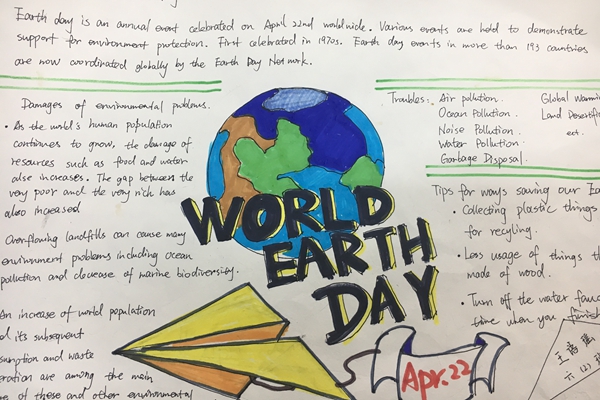 Earth day is an annual event celebrated on April 22nd worldwide. Various events are held to demonstrate
support for environment protection. First celebrated in 1970s. Earth day events in more than 193 countries
are now coordinated globally by the Earth Day Network.
Damages of environmental problems.
• As the world's human population
continues to grow, the
resources such as food and water
also increases. The gap between the
very poor and the very rich has
also increased
Overflowing landfills can cause many
environment problems including ocean
pollution and of marine biodiversity.
An increase of world population
its subsequent
and waste
are among the main
of these and other environmental
WORLD
EARTH
DAY
Apr.22
Troubles: Air pollution.
Ocean Pollution.
Noise Pollution.
Water Pollution
Garbage Disposal.
Global Warmin
Land Desertifi
ect.
Tips for ways saving our Ea
• Collecting plastic things
for recyling.
• Less usage of things th
made of wood.
• Turn off the water fauc
time when you finish
王
六(2)